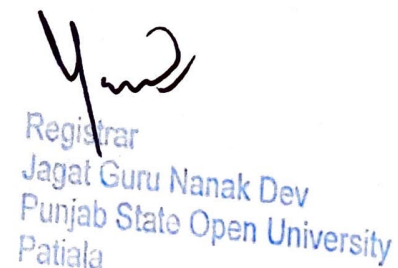 Registrar
Jagat Guru Nanak Dev
Punjab State Open University
Patiala